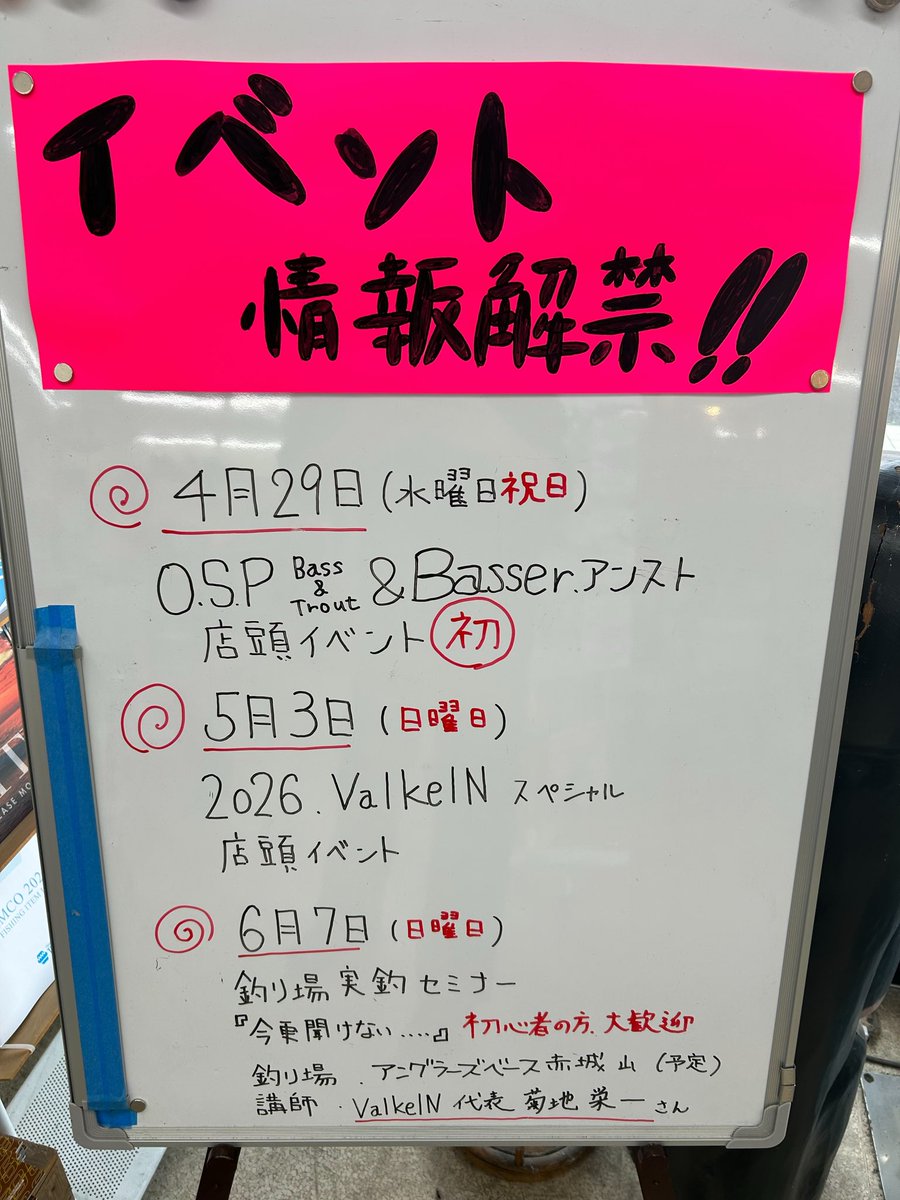 イベント
情報解禁!!
4月29日(水曜日祝日)
O.S.P Bass & Trout &Basser.アンスト
店頭イベント 初
5月3日(日曜日)
2026.ValkeIN スペシャル
店頭イベント
6月7日(日曜日)
釣り場実釣セミナー
『今更聞けない.....』初心者の方.大歓迎
釣り場.アングラーズベース赤城山(予定)
講師.ValkeIN代表菊地栄一さん